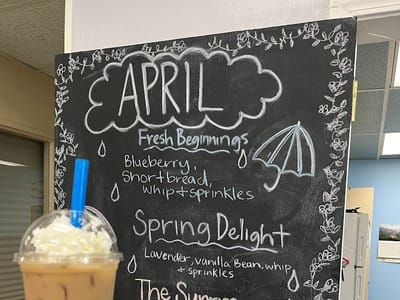 APRIL
Fresh Beginnings
Blueberry,
shortbread,
whip + sprinkles
Spring Delight
Lavender, vanilla Bean, whip
+ sprinkles
The